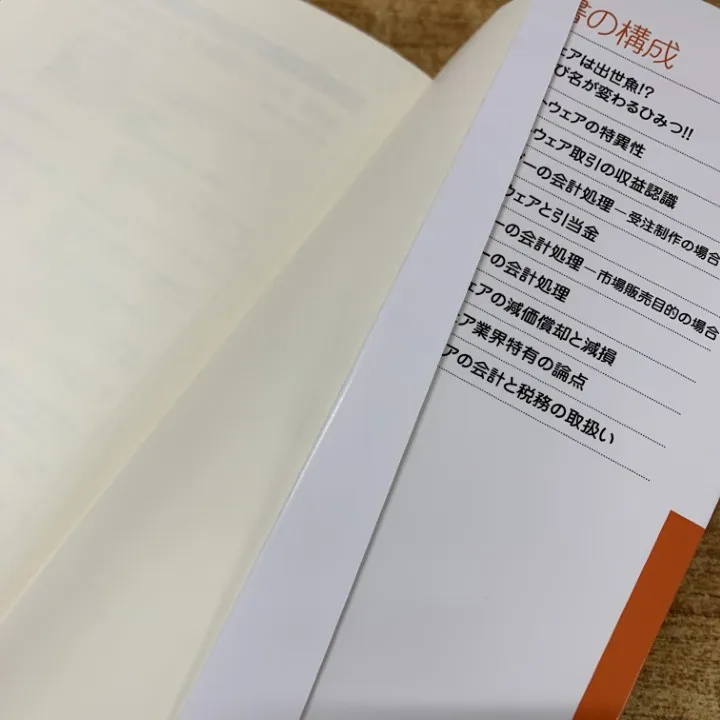 書の構成
ェアは出世魚!?
び名が変わるひみつ!!
トウェアの特異性
ウェア取引の収益認識
ーの会計処理－受注制作の場合
ウェアと引当金
ーの会計処理－市場販売目的の場合
ーの会計処理
ェアの減価償却と減損
ェア業界特有の論点
アの会計と税務の取扱い